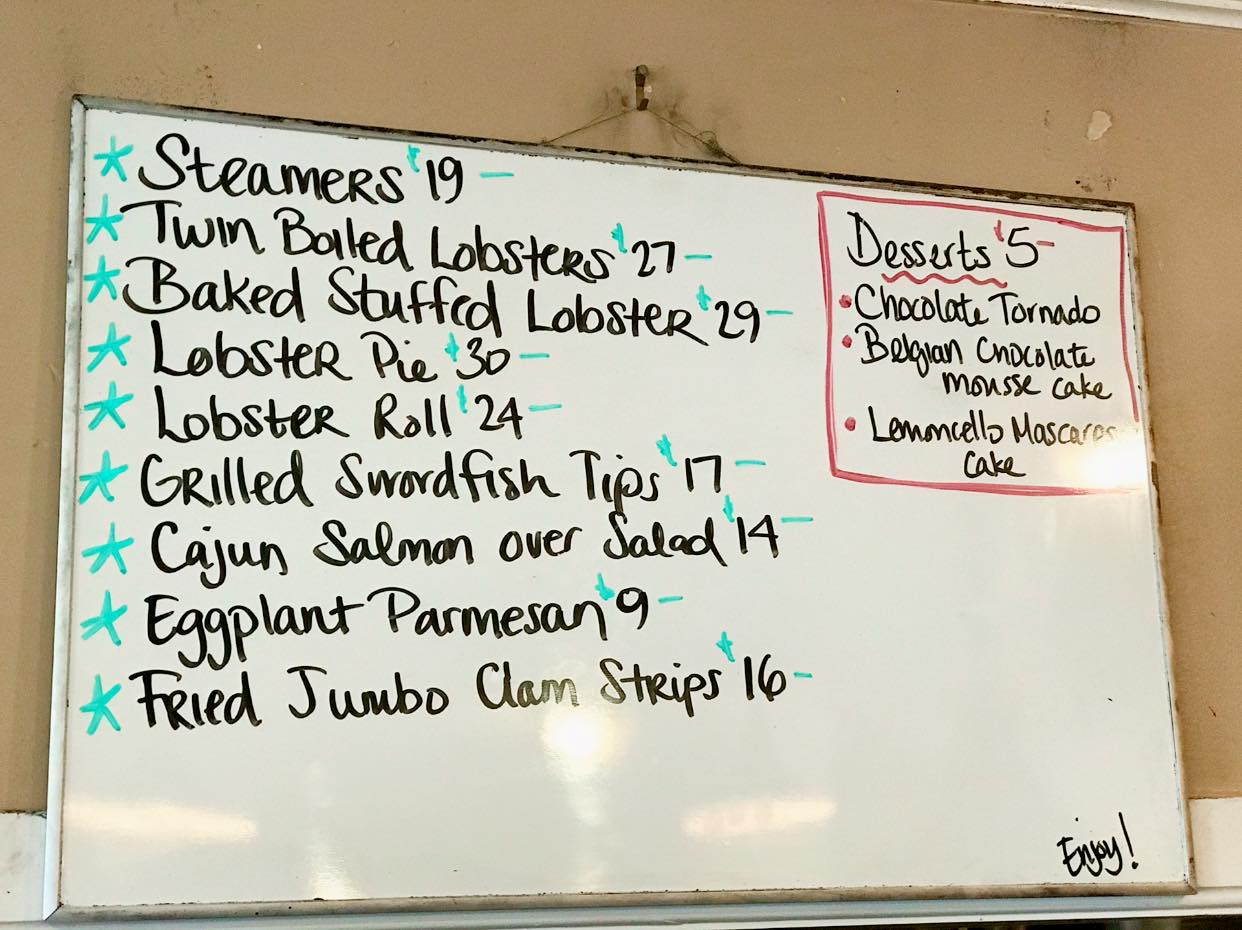 * Steamers $19 —
* Twin Boiled Lobsters $27 —
* Baked Stuffed Lobster $29 —
* Lobster Pie $30 —
* Lobster Roll $24 —
* Grilled Swordfish Tips $17 —
* Cajun Salmon over Salad $14 —
* Eggplant Parmesan $9 —
* Fried Jumbo Clam Strips $16 —
Desserts $5 —
• Chocolate Tornado
• Belgian Chocolate
mousse cake
• Lemoncello
Cake
Enjoy!